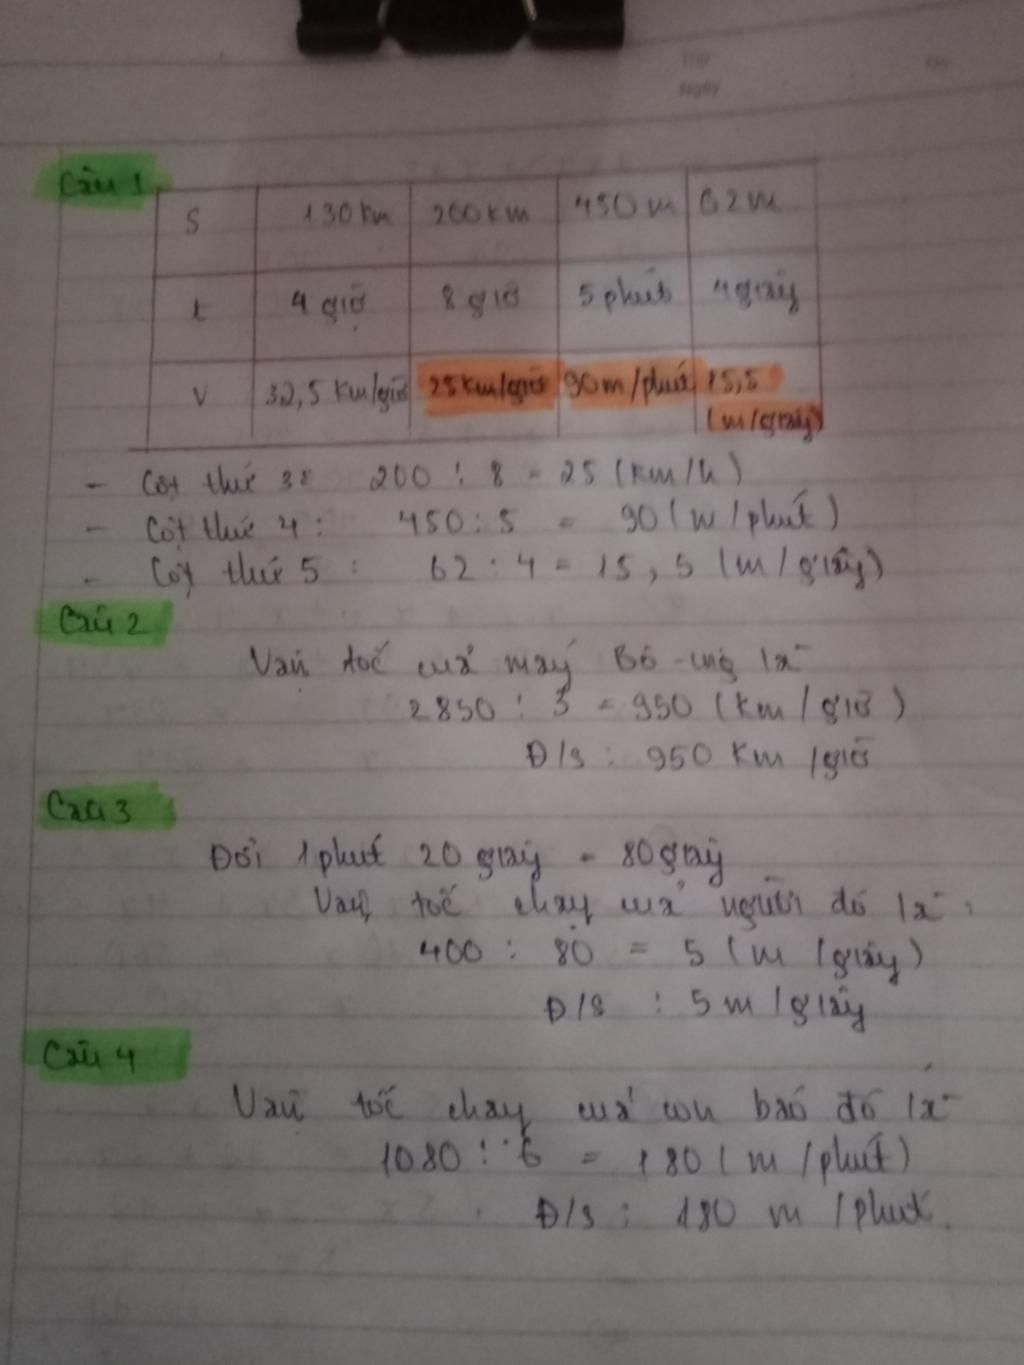 Thứ
Ngày
Câu 1
S 130 Km 200 Km 450 m 62 m
t 4 giờ 8 giờ 5 phút 4 giây
V 32,5 Km/giờ 25 Km/giờ 90 m/phút 15,5 (m/giây)
- Cột thứ 3: 200 : 8 = 25 (Km/h)
- Cột thứ 4: 450 : 5 = 90 (m/phút)
- Cột thứ 5: 62 : 4 = 15,5 (m/giây)
Câu 2
Vận tốc của máy Bô-ing là
2850 : 3 = 950 (Km/giờ)
Đ/S : 950 Km/giờ
Câu 3
Đổi 1 phút 20 giây = 80 giây
Vận tốc chạy của người đó là :
400 : 80 = 5 (m/giây)
Đ/S : 5 m/giây
Câu 4
Vận tốc chạy của con báo đó là
1080 : 6 = 180 (m/phút)
Đ/S : 180 m/phút.